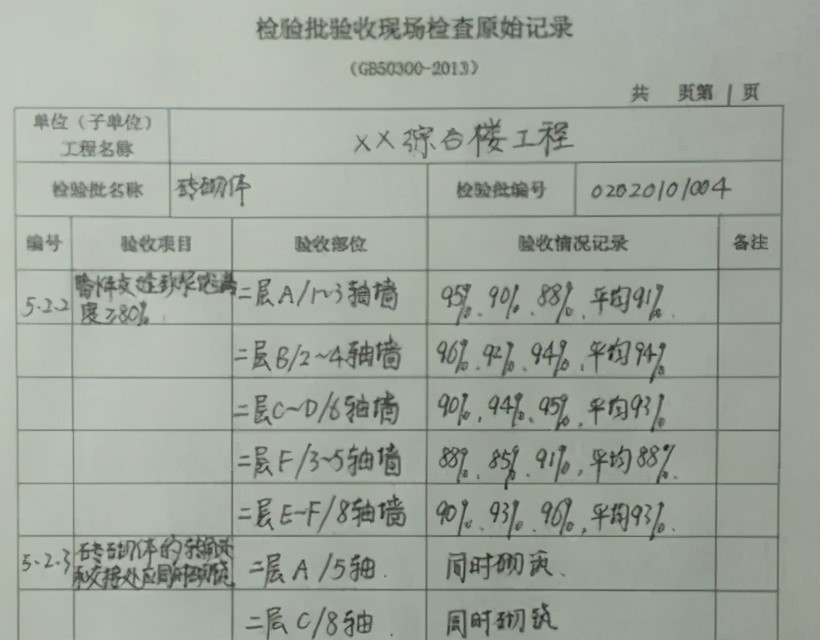 检验批验收现场检查原始记录
(GB50300-2013)
共 页第 1 页
单位(子单位)
工程名称
××综合楼工程
检验批名称 砖砌体 检验批编号 02020101004
编号 验收项目 验收部位 验收情况记录 备注
5.2.2 灰缝砂浆饱满 二层A/1~3轴墙 95%、90%、88%,平均91%.
度≥80%.
二层B/2~4轴墙 96%、92%、94%,平均94%
二层C~D/6轴墙 90%、94%、95%,平均93%
二层F/3~5轴墙 88%、85%、91%,平均88%.
二层E~F/8轴墙 90%、93%、96%,平均93%.
5.2.3 砖砌体的转角处 二层A/5轴. 同时砌筑.
和交接处应同时砌筑
二层C/8轴. 同时砌筑